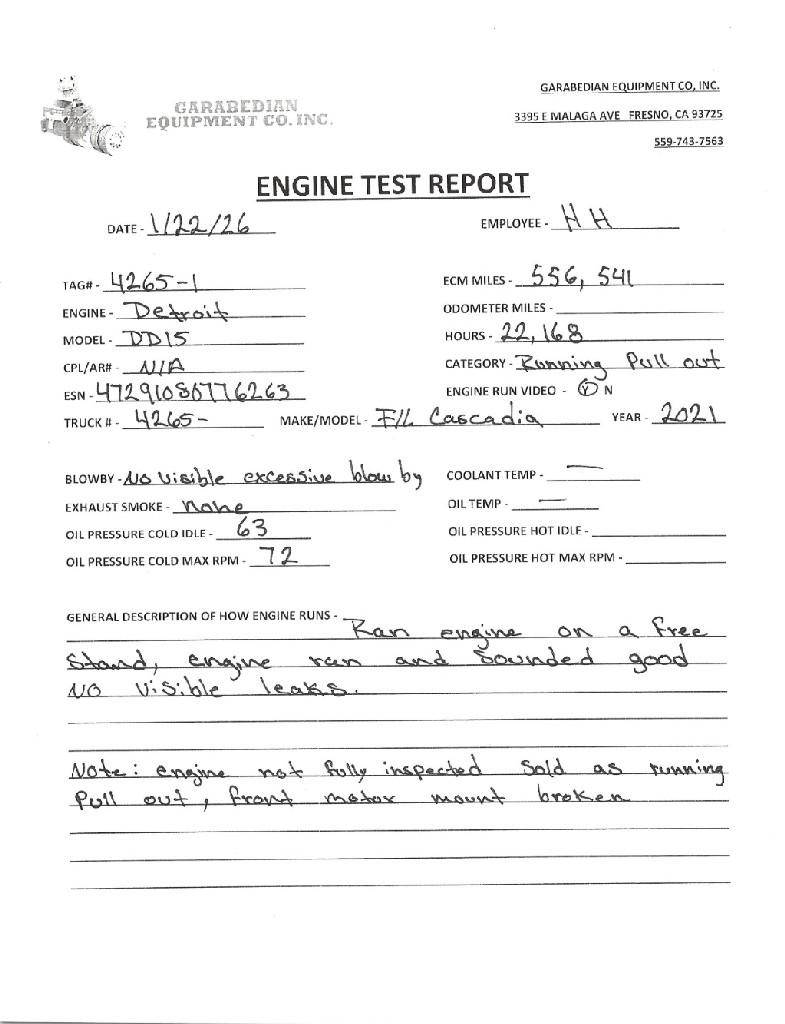 GARABEDIAN
EQUIPMENT CO. INC.
GARABEDIAN EQUIPMENT CO, INC.
3395 E MALAGA AVE FRESNO, CA 93725
559-743-7563
ENGINE TEST REPORT
DATE - 1/22/26
EMPLOYEE - HH
TAG# - 4265-1
ECM MILES - 556, 541
ENGINE - Detroit
ODOMETER MILES -
MODEL - DD15
HOURS - 22, 168
CPL/AR# - N/A
CATEGORY - Running Pull out
ESN - 472910S0776263
ENGINE RUN VIDEO - Y N
TRUCK # - 4265- MAKE/MODEL - F/L Cascadia YEAR - 2021
BLOWBY - No Visible excessive blow by
COOLANT TEMP - —
EXHAUST SMOKE - none
OIL TEMP - —
OIL PRESSURE COLD IDLE - 63
OIL PRESSURE HOT IDLE -
OIL PRESSURE COLD MAX RPM - 72
OIL PRESSURE HOT MAX RPM -
GENERAL DESCRIPTION OF HOW ENGINE RUNS -
Ran engine on a free
Stand, engine ran and Sounded good
NO Visible leaks.
Note: engine not fully inspected Sold as running
Pull out, front motor mount broken